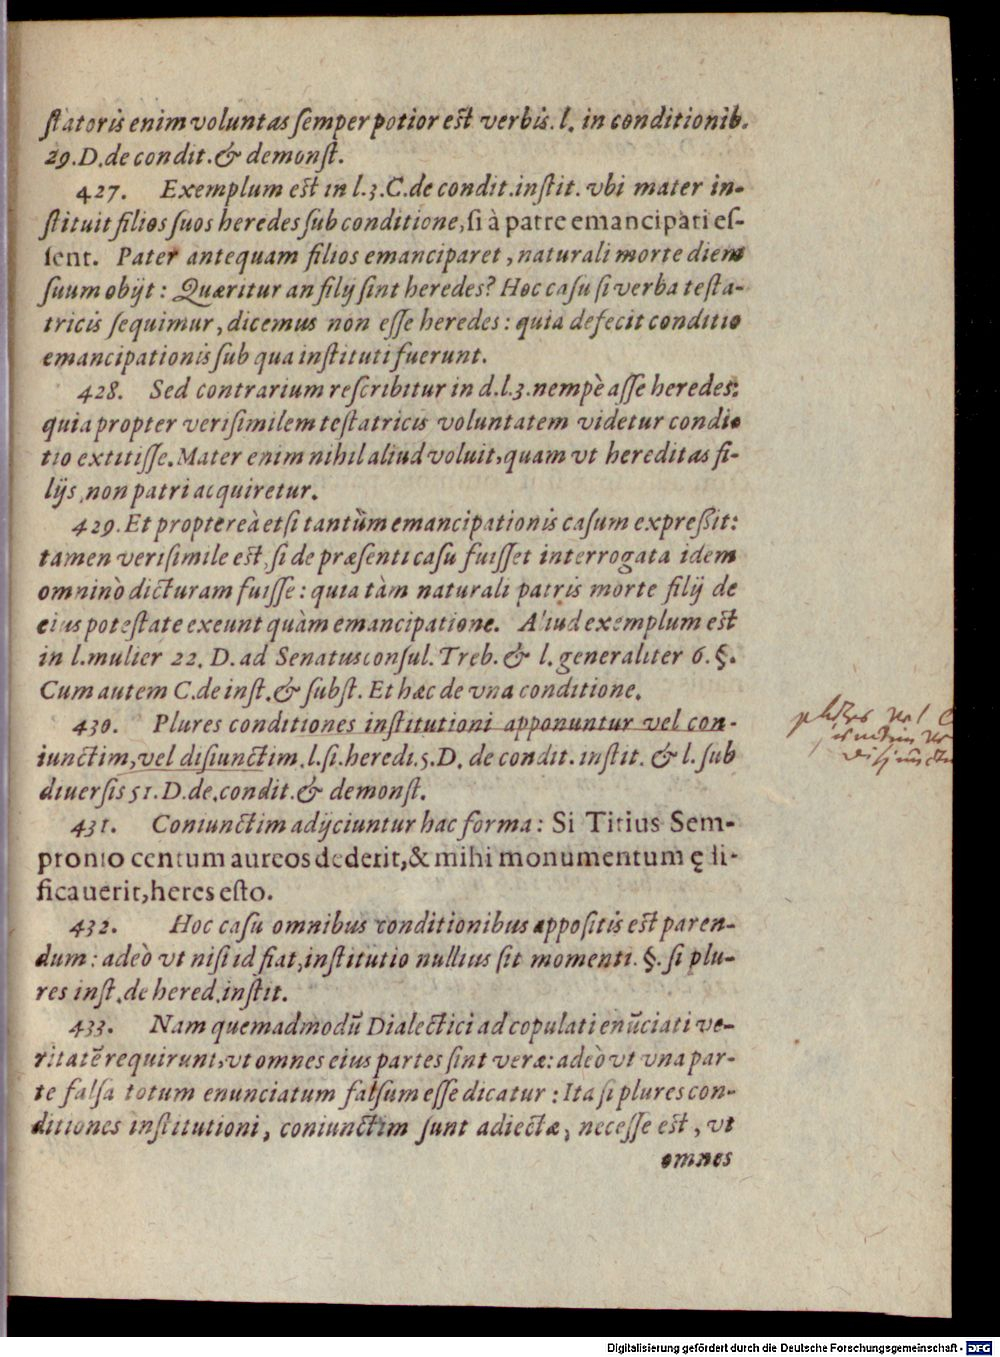 ſtatoris enim voluntas ſemper potior eſt verbis. l. in conditionib.
29. D. de condit. & demonſt.
427. Exemplum eſt in l. 3. C. de condit. inſtit. vbi mater in-
ſtituit filios ſuos heredes ſub conditione, ſi à patre emancipati eſ-
ſent. Pater antequam filios emanciparet, naturali morte diem
ſuum obijt: Quæritur an filij ſint heredes? Hoc caſu ſi verba teſta-
tricis ſequimur, dicemus non eſſe heredes: quia defecit conditio
emancipationis ſub qua inſtituti fuerunt.
428. Sed contrarium reſcribitur in d. l. 3. nempè aſſe heredes:
quia propter veriſimilem teſtatricis voluntatem videtur condi
tio extitiſſe. Mater enim nihil aliud voluit, quam vt hereditas fi-
lijs, non patri acquiretur.
429. Et proptereà etſi tantùm emancipationis caſum expreßit:
tamen veriſimile eſt, ſi de præſenti caſu fuiſſet interrogata idem
omninò dicturam fuiſſe: quia tàm naturali patris morte filij de
eius poteſtate exeunt quàm emancipatione. Aliud exemplum eſt
in l. mulier 22. D. ad Senatusconſul. Treb. & l. generaliter 6. §.
Cum autem C. de inſt. & ſubſt. Et hæc de vna conditione.
430. Plures conditiones inſtitutioni apponuntur vel con-
iunctim, vel diſiunctim. l. ſi. heredi. 5. D. de condit. inſtit. & l. ſub
diuerſis 51. D. de. condit. & demonſt.
431. Coniunctim adijciuntur hac forma: Si Titius Sem-
pronio centum aureos dederit, & mihi monumentum ędi-
ficauerit, heres eſto.
432. Hoc caſu omnibus conditionibus appoſitis eſt paren-
dum: adeò vt niſi id fiat, inſtitutio nullius ſit momenti. §. ſi plu-
res inſt. de hered. inſtit.
433. Nam quemadmodū Dialectici ad copulati enūciati ve-
ritatē requirunt, vt omnes eius partes ſint veræ: adeò vt vna par-
te falſa totum enunciatum falſum eſſe dicatur: Ita ſi plures con-
ditiones inſtitutioni, coniunctim ſunt adiectæ, neceſſe eſt, vt
omnes
Digitalisierung gefördert durch die Deutsche Forschungsgemeinschaft - DFG